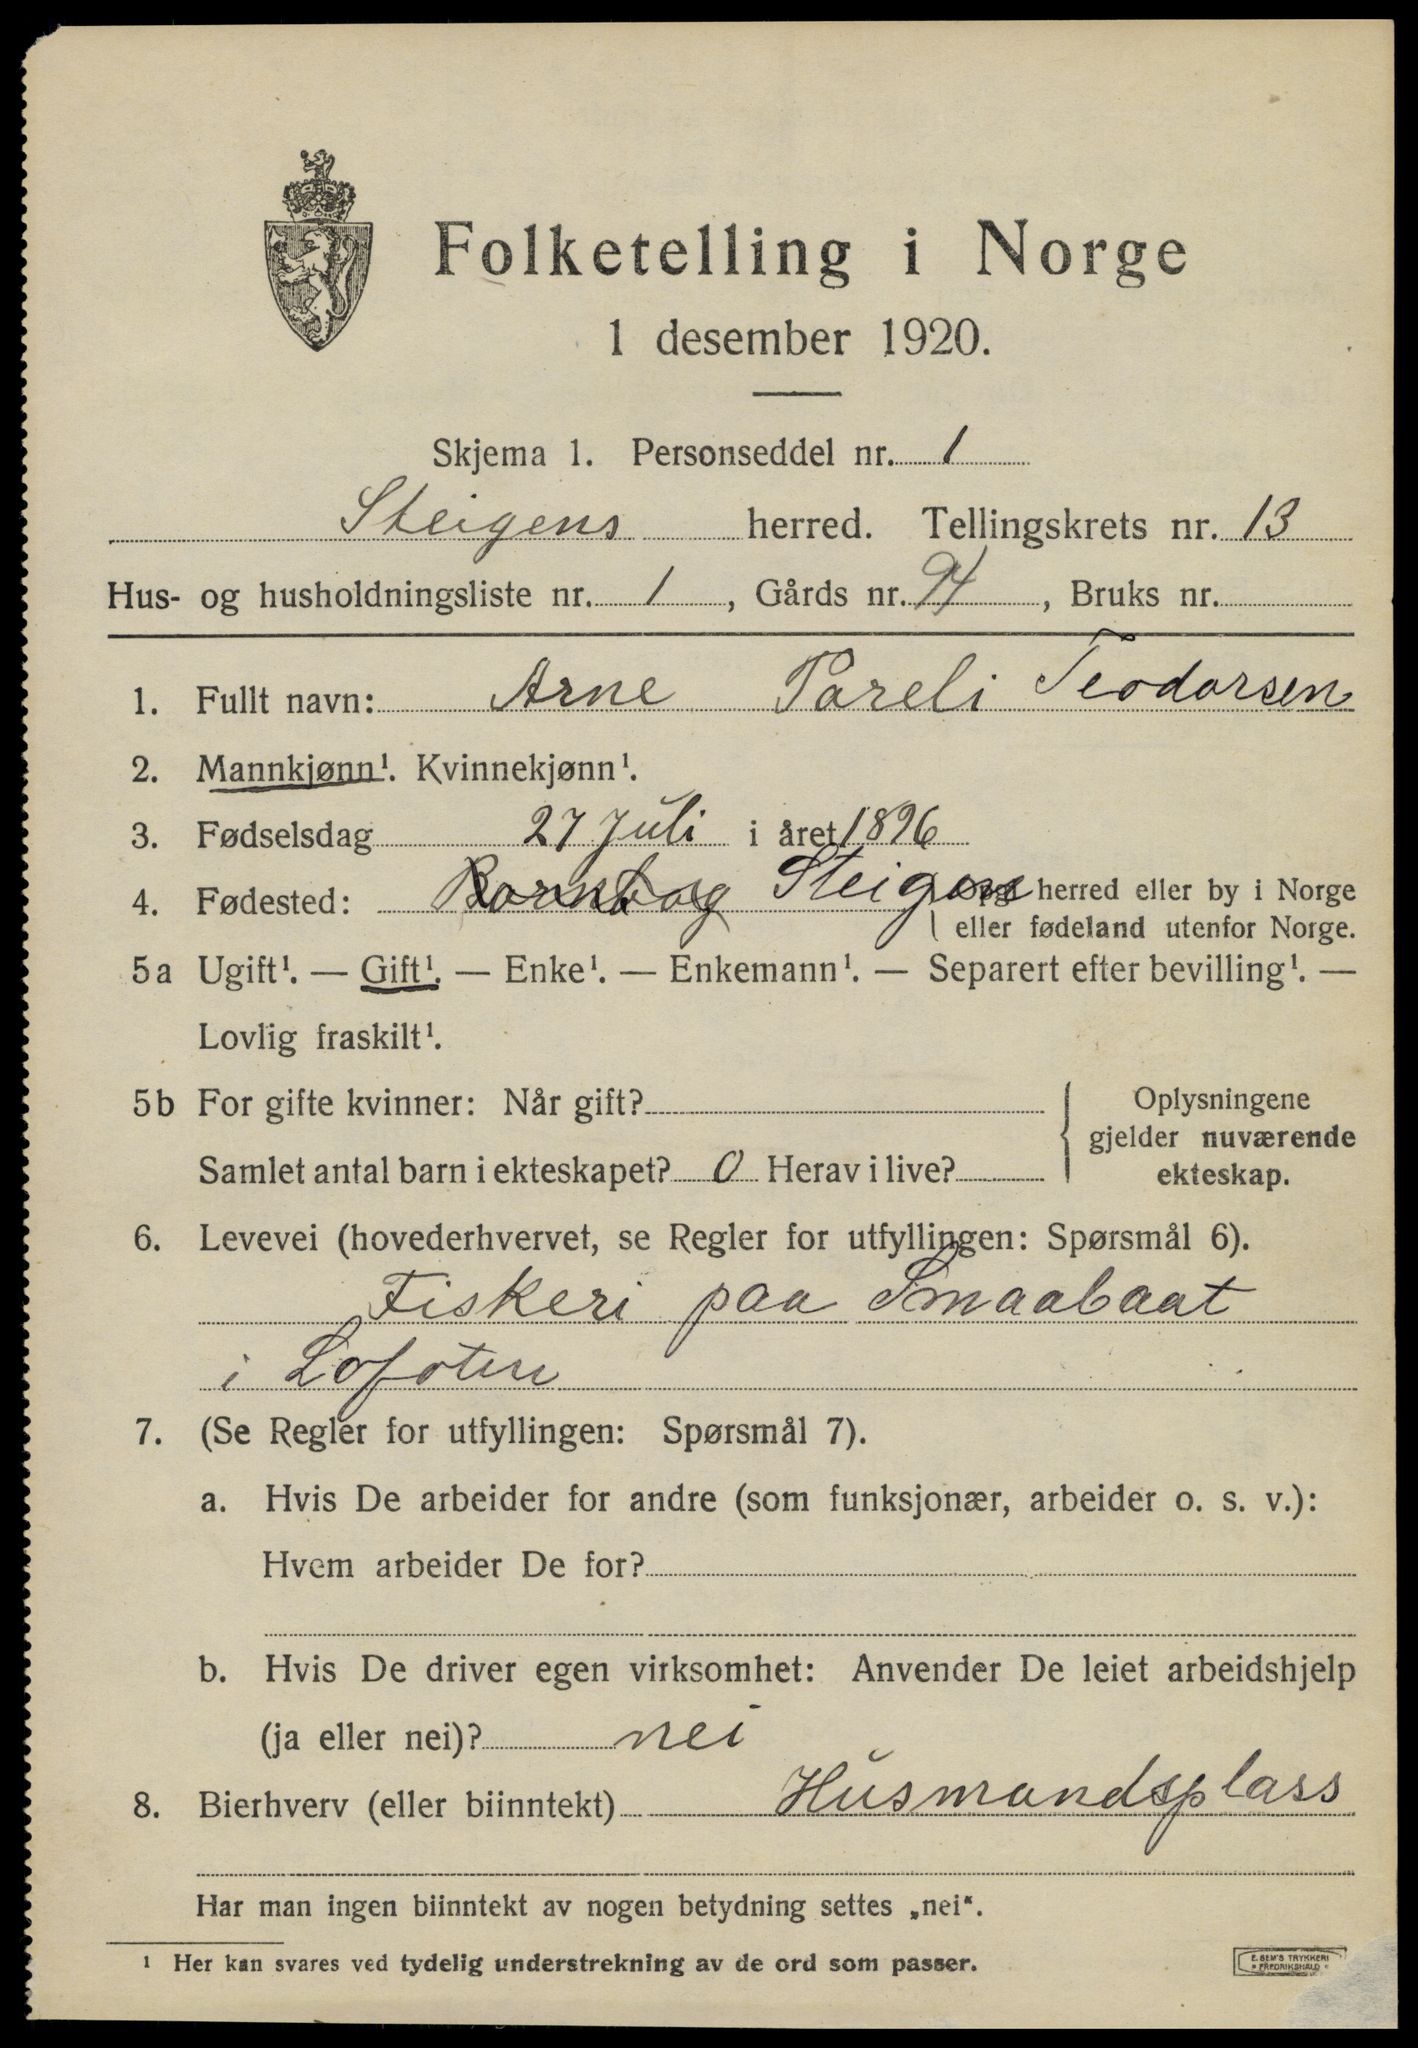 Folketelling i Norge
1 desember 1920.
Skjema 1. Personseddel nr. 1
Steigens herred. Tellingskrets nr. 13
Hus- og husholdningsliste nr. 1, Gårds nr. 94, Bruks nr.
1. Fullt navn: Arne Pareli Teodorsen
2. Mannkjønn¹. Kvinnekjønn¹.
3. Fødselsdag 27 Juli i året 1896
4. Fødested: Steigen herred eller by i Norge
eller fødeland utenfor Norge.
5a Ugift¹. — Gift¹. — Enke¹. — Enkemann¹. — Separert efter bevilling¹. —
Lovlig fraskilt¹.
5b For gifte kvinner: Når gift?
Samlet antal barn i ekteskapet? 0 Herav i live?
Oplysningene
gjelder nuværende
ekteskap.
6. Levevei (hovederhvervet, se Regler for utfyllingen: Spørsmål 6).
Fiskeri paa Smaabaat
i Lofoten
7. (Se Regler for utfyllingen: Spørsmål 7).
a. Hvis De arbeider for andre (som funksjonær, arbeider o. s. v.):
Hvem arbeider De for?
b. Hvis De driver egen virksomhet: Anvender De leiet arbeidshjelp
(ja eller nei)? nei
8. Bierhverv (eller biinntekt) Husmandsplass
Har man ingen biinntekt av nogen betydning settes „nei“.
¹ Her kan svares ved tydelig understrekning av de ord som passer.
E. SEM'S TRYKKERI
FREDRIKSHALD